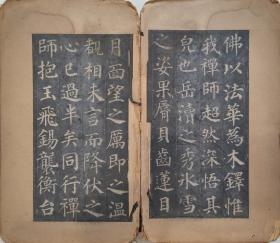 佛以法華為木鐸惟
我禪師超然深悟其
皃也岳瀆之秀冰雪
之姿果脣貝齒蓮目
月面望之厲即之溫
覩相未言而降伏之
心已過半矣同行禪
師抱玉飛錫襲衡台